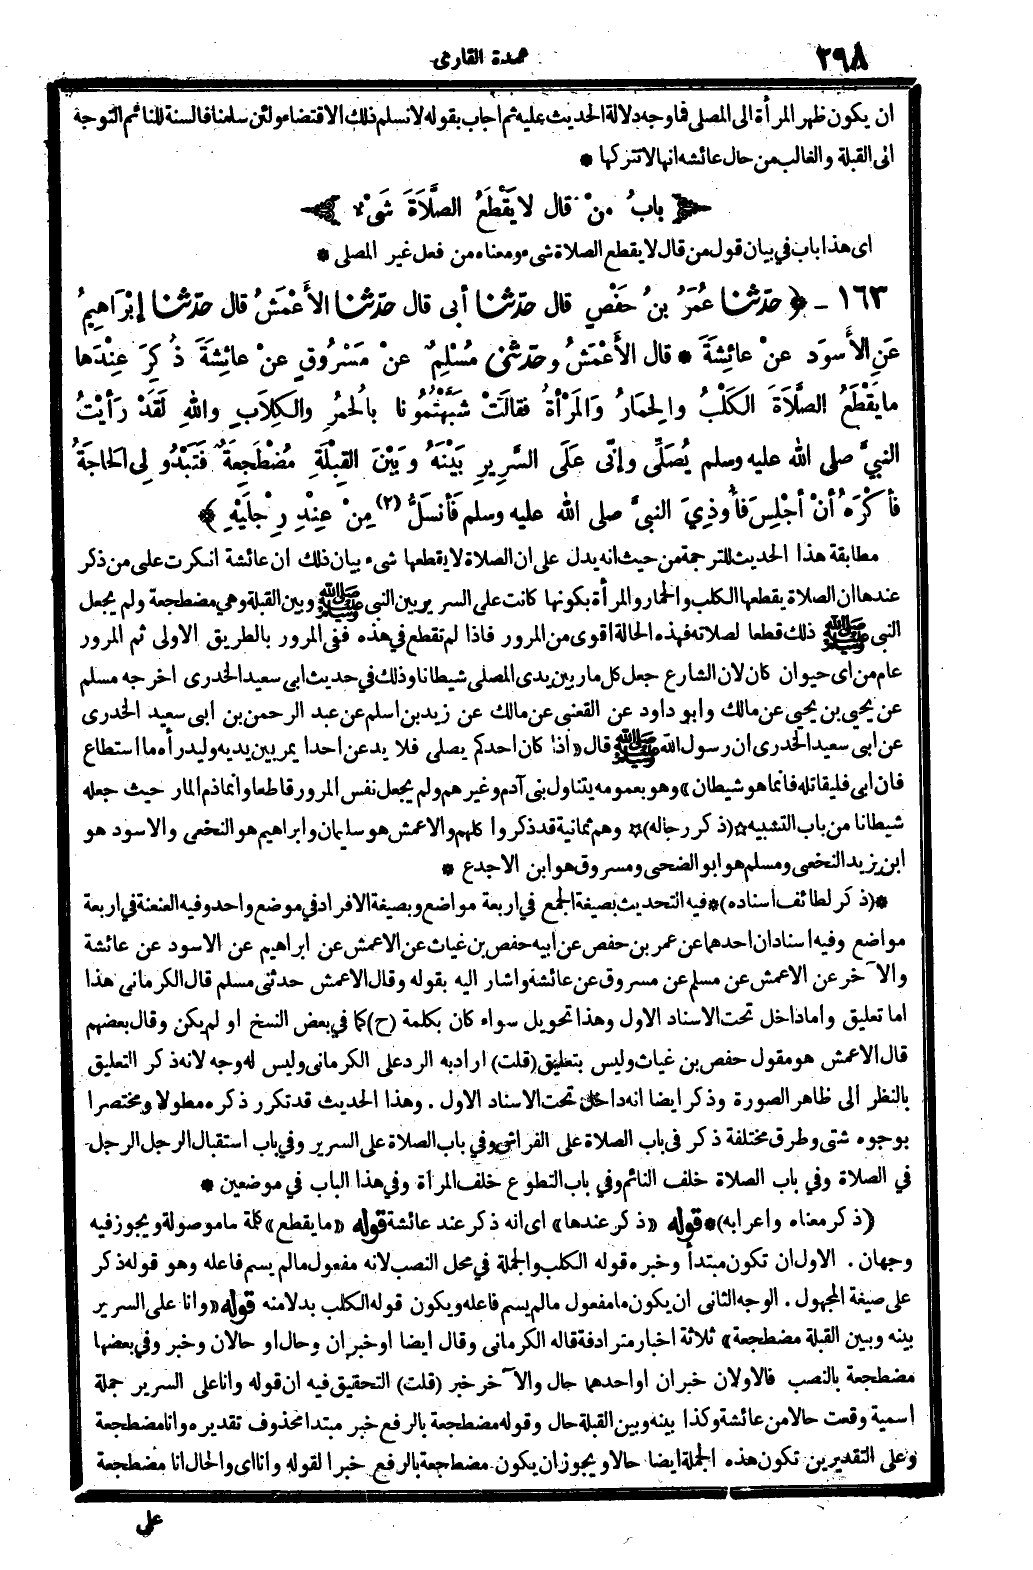 ٢٩٨
عمدة القارى
ان يكون ظهر المرأة الى المصلى فماوجه دلالة الحديث عليه ثم اجاب بقوله لانسلم ذلك الاقتضاء ولئن سلمنا فالسنة للنائم التوجه
الى القبلة والغالب من حال عائشه انها لاتتركها *
﴿ بابُ مَنْ قال لا يَقْطَعُ الصَّلاَةَ شَىْءٌ ﴾
اى هذا باب في بيان قول من قال لايقطع الصلاة شىء ومعناه من فعل غير المصلى *
١٦٣ ـ ﴿ حدّثنا عُمَرُ بنُ حَفْصٍ قال حدّثنا أبى قال حدّثنا الأَعْمَشُ قال حدّثنا إبْرَاهِيمُ
عَنِ الأَسوَدِ عنْ عائِشَةَ * قال الأَعْمَشُ وحدّثنى مُسْلِمٌ عنْ مَسْرُوقٍ عنْ عائِشَةَ ذُكِرَ عِنْدَها
مايَقْطَعُ الصَّلاَةَ الكَلْبُ والحِمَارُ وَالمَرْأةُ فقالَتْ شَبَّهْتُمُونا بالحُمُرِ والكِلاَبِ واللهِ لَقَدْ رَأيْتُ
النبىَّ صلى الله عليه وسلم يُصَلِّى وإنّى عَلَى السَّرِيرِ بَيْنَهُ وبَيْنَ القِبْلَةِ مُضْطَجِعَةٌ فَتَبْدُو لِى الحَاجَةُ
فأكْرَهُ أنْ أجْلِسَ فأُوذِىَ النبىَّ صلى الله عليه وسلم فَأنسَلُّ (٢) مِنْ عِنْدِ رِجْلَيْهِ ﴾
مطابقة هذا الحديث للترجمة من حيث انه يدل على ان الصلاة لايقطعها شىء بيان ذلك ان عائشة انكرت على من ذكر
عندها ان الصلاة يقطعها الكلب والحمار والمرأة بكونها كانت على السرير بين النبى ﷺ وبين القبلة وهي مضطجعة ولم يجعل
النبى ﷺ ذلك قطعا لصلاته فهذه الحالة اقوى من المرور فاذا لم تقطع في هذه ففى المرور بالطريق الاولى ثم المرور
عام من اى حيوان كان لان الشارع جعل كل مار بين يدى المصلى شيطانا وذلك في حديث ابى سعيد الخدرى اخرجه مسلم
عن يحيى بن يحيى عن مالك وابو داود عن القعنى عن مالك عن زيد بن اسلم عن عبد الرحمن بن ابى سعيد الخدرى
عن ابى سعيد الخدرى ان رسول الله ﷺ قال «اذا كان احدكم يصلى فلا يدع احدا يمر بين يديه وليدرأه ما استطاع
فان ابى فليقاتله فانما هو شيطان» وهو بعمومه يتناول بنى آدم وغيرهم ولم يجعل نفس المرور قاطعا وانما ذم المار حيث جعله
شيطانا من باب التشبيه ☆(ذكر رجاله)☆ وهم ثمانية قد ذكروا كلهم والاعمش هو سليمان وابراهيم هو النخعى والاسود هو
ابن يزيد النخعى ومسلم هو ابو الضحى ومسروق هو ابن الاجدع *
*(ذكر لطائف اسناده)* فيه التحديث بصيغة الجمع في اربعة مواضع وبصيغة الافراد في موضع واحد وفيه العنعنة في اربعة
مواضع وفيه اسنادان احدهما عن عمر بن حفص عن ابيه حفص بن غياث عن الاعمش عن ابراهيم عن الاسود عن عائشة
والآخر عن الاعمش عن مسلم عن مسروق عن عائشة واشار اليه بقوله وقال الاعمش حدثنى مسلم قال الكرمانى هذا
اما تعليق واما داخل تحت الاسناد الاول وهذا تحويل سواء كان بكلمة (ح) كما في بعض النسخ او لم يكن وقال بعضهم
قال الاعمش هو مقول حفص بن غياث وليس بتعليق (قلت) اراد به الرد على الكرمانى وليس له وجه لانه ذكر التعليق
بالنظر الى ظاهر الصورة وذكر ايضا انه داخل تحت الاسناد الاول . وهذا الحديث قد تكرر ذكره مطولا ومختصرا
بوجوه شتى وطرق مختلفة ذكر في باب الصلاة على الفراش وفي باب الصلاة على السرير وفي باب استقبال الرجل الرجل
في الصلاة وفي باب الصلاة خلف النائم وفي باب التطوع خلف المرأة وفي هذا الباب في موضعين *
(ذكر معناه واعرابه)* قوله «ذكر عندها» اى انه ذكر عند عائشة قوله «مايقطع» كلمة ما موصولة ويجوز فيه
وجهان . الاول ان تكون مبتدأ وخبره قوله الكلب والجملة في محل النصب لانه مفعول مالم يسم فاعله وهو قوله ذكر
على صيغة المجهول . الوجه الثانى ان يكون ما مفعول مالم يسم فاعله ويكون قوله الكلب بدلا منه قوله «وانا على السرير
بينه وبين القبلة مضطجعة» ثلاثة اخبار مترادفة قاله الكرمانى وقال ايضا او خبران وحال او حالان وخبر وفي بعضها
مضطجعة بالنصب فالاولان خبران او احدهما حال والآخر خبر (قلت) التحقيق فيه ان قوله وانا على السرير جملة
اسمية وقعت حالا من عائشة وكذا بينه وبين القبلة حال وقوله مضطجعة بالرفع خبر مبتدا محذوف تقديره وانا مضطجعة
وعلى التقديرين تكون هذه الجملة ايضا حالا ويجوز ان يكون مضطجعة بالرفع خبرا لقوله وانا اى والحال انا مضطجعة
على